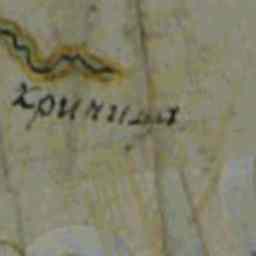 хриница